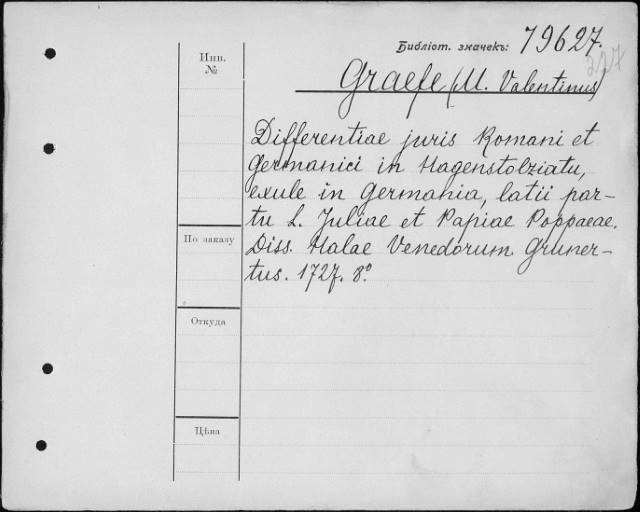 Библіот. значекъ: 79627.
227
Инв.
№
Graefe (M. Valentinus)
Differentiae juris Romani et
Germanici in Hagenstolziatu,
exule in Germania, latii par-
tu L. Juliae et Papiae Poppaeae.
Diss. Halae Venedorum. Gruner-
tus. 1727. 8°
По заказу
Откуда
Цѣна